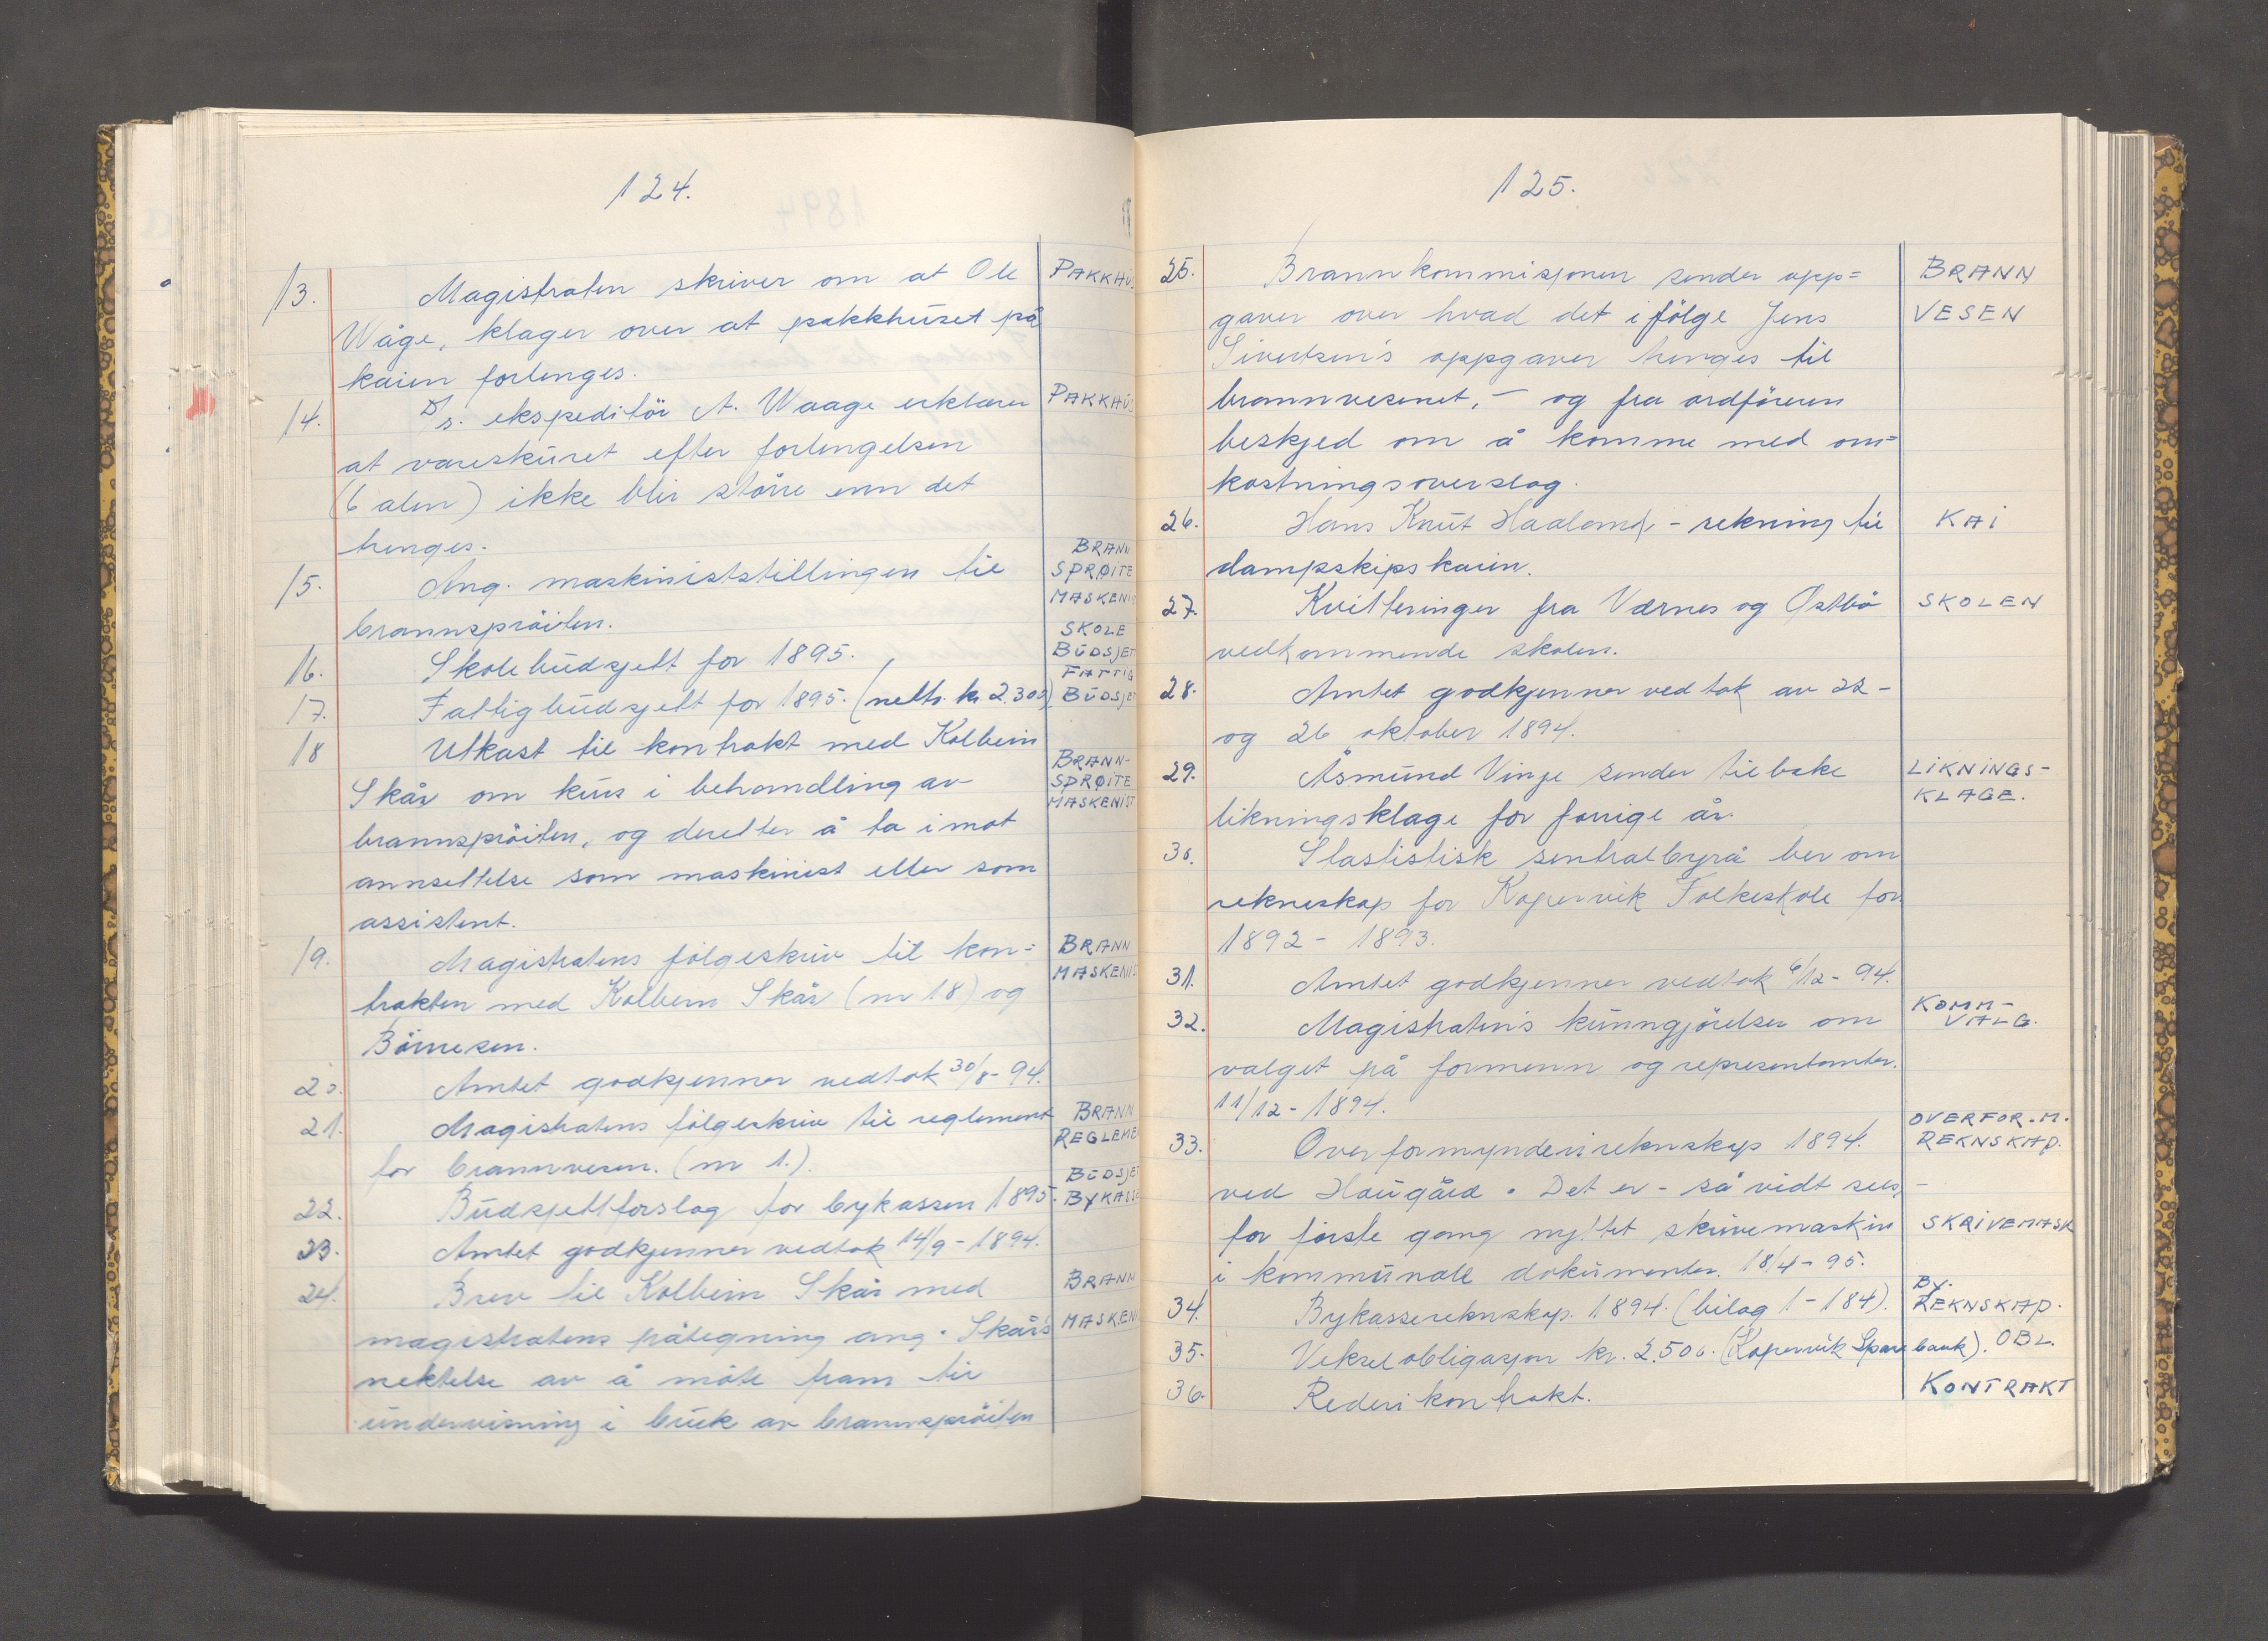 124.
13. Magistraten skriver om at Ole PAKKHÚS
Wåge, klager over at pakkhúset på
kaien forlenges.
14. D/s. ekspeditör A. Waage erklærer PAKKHÚS
at vareskúret efter forlengelsen
(6 alen) ikke blir större enn det
trenges.
15. Ang. maskiniststillingen til BRANN SPRØITE MASKENIS
brannspröiten.
16. Skolebúdsjett for 1895. SKOLE BÚDSJET
17. Fattigbúdsjett for 1895. (netto kr 2.300). FATTIG BÚDSJE
18 Utkast til kontrakt med Kolbein BRANN-
Skår om kurs i behandling av SPRØITE MASKENIST
brannspröiten, og deretter å ta imot
annsettelse som maskinist eller som
assistent.
19. Magistratens fölgeskriv til kon= BRANN MASKENIS
trakten med Kolbein Skår (nr 18) og
Börnesen.
20. Amtet godkjenner vedtak 30/8-94.
21. Magistratens fölgeskriv til reglement BRANN REGLEME
for brannvesen. (nr 1.).
22. Búdsjettforslag for bykassen 1895. BÚDSJE BYKASSE
23. Amtet godkjenner vedtak 14/9-1894.
24. Brev til Kolbein Skår med BRANN
magistratens påtegning ang. Skår's MASKENI
nektelse av å möte fram til
úndervisning i brúk av brannspröiten
125.
25. Brannkommisjonen sender opp= BRANN
gaver over hvad det i fölge Jens VESEN
Sivertsen's oppgaver trenges til
brannvesenet, - og fra ordföreren
beskjed om å komme med om=
kostningsoverslag.
26. Hans Knút Haaland, - rekning til KAI
dampskipskaien.
27. Kvitteringer fra Værnes og Østbö SKOLEN
vedkommende skolen.
28. Amtet godkjenner vedtak av 22-
og 26 oktober 1894.
29. Åsmúnd Vinje sender tilbake LIKNINGS-
likningsklage for forrige år. KLAGE.
30. Stastistisk sentralbyrå ber om
rekneskap for Kopervik Folkeskole for
1892 - 1893.
31. Amtet godkjenner vedtak 6/12-94.
32. Magistraten's kúnngjörelser om KOMM- VALG.
valget på formenn og representanter.
11/12-1894.
33. Overformynderireknskap 1894. OVERFOR.M. REKNSKAP.
ved Haúgård. Det er - så vidt sees, -
for förste gang nyttet skrivemaskin SKRIVEMASK
i kommúnale dokúmenter. 18/4-95.
34. Bykassereknskap. 1894. (bilag 1-184). BY. REKNSKAP.
35. Vekselobligasjon kr. 2.500. (Kopervik Sparebank). OBL.
36. Rederikontrakt. KONTRAKT